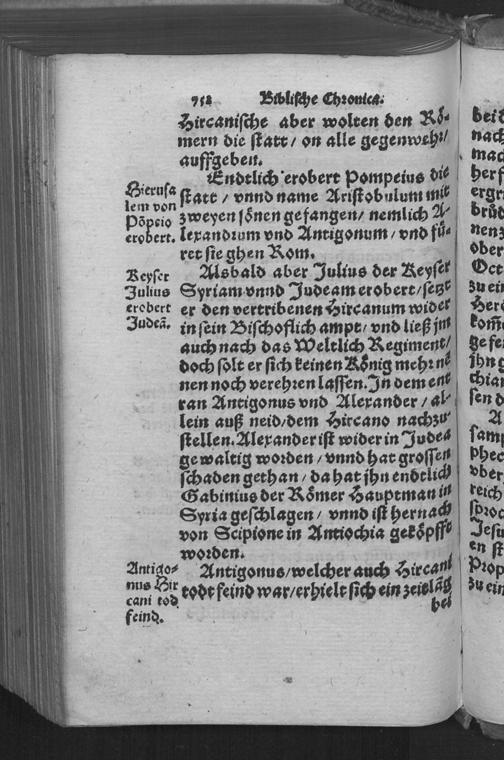 752 Biblische Chronica.
Hircanische aber wolten den Rö-
mern die statt / on alle gegenwehr /
auffgeben.
Endtlich erobert Pompeius die
statt / vnnd name Aristobulum mit
zweyen sönen gefangen / nemlich A-
lexandrum vnd Antigonum / vnd fü-
ret sie ghen Rom.
Hierusa
lem von
Põpeio
erobert.
Alsbald aber Julius der Keyser
Syriam vnnd Judeam erobert / setzt
er den vertribenen Hircanum wider
in sein Bischoflich ampt / vnd ließ jm
auch nach das Weltlich Regiment /
doch solt er sich keinen König mehr nē
nen noch verehren lassen. In dem ent
ran Antigonus vnd Alexander / al-
lein auß neid / dem Hircano nachzu
stellen. Alexander ist wider in Judea
gewaltig worden / vnnd hat grossen
schaden gethan / da hat jhn endtlich
Gabinius der Römer Hauptman in
Syria geschlagen / vnnd ist hernach
von Scipione in Antiochia geköpfft
worden.
Keyser
Julius
erobert
Judeã.
Antigonus / welcher auch Hircani
todt feind war / erhielt sich ein zeitlãg
bei
Antigo-
nus Hir
cani tod
feind.
bei d
nach
mac
her f
ergri
brüd
nenz
ober
Oct
zu ein
Hero
kom̃t
gefen
jhn g
chian
sen d
A
samp
phec
vber
reich
sproc
Jesu
en st
Prop
zu ein